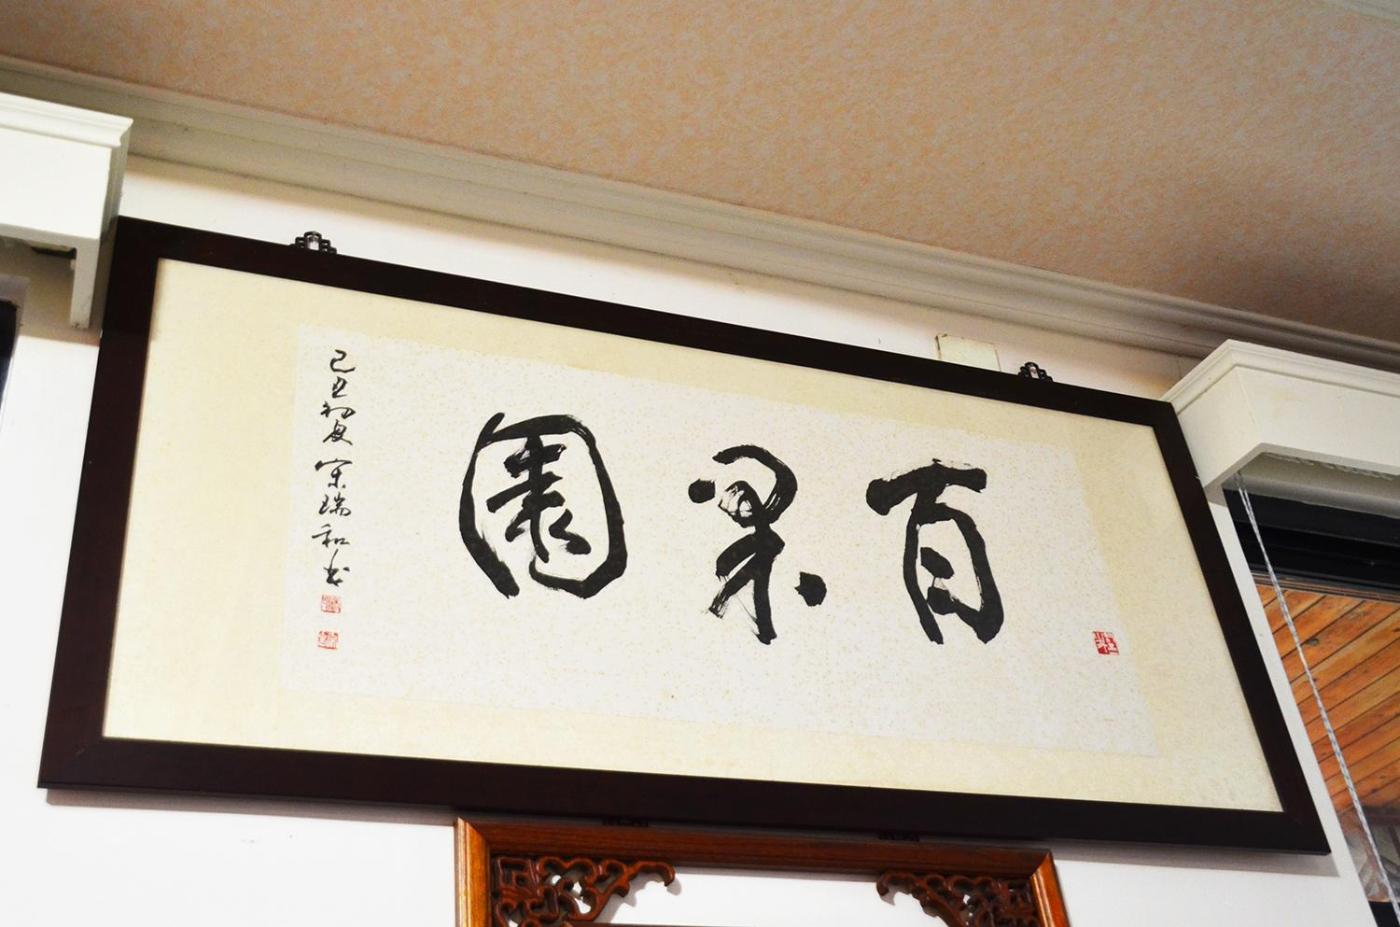 百果園
己丑初夏 宋瑞和書